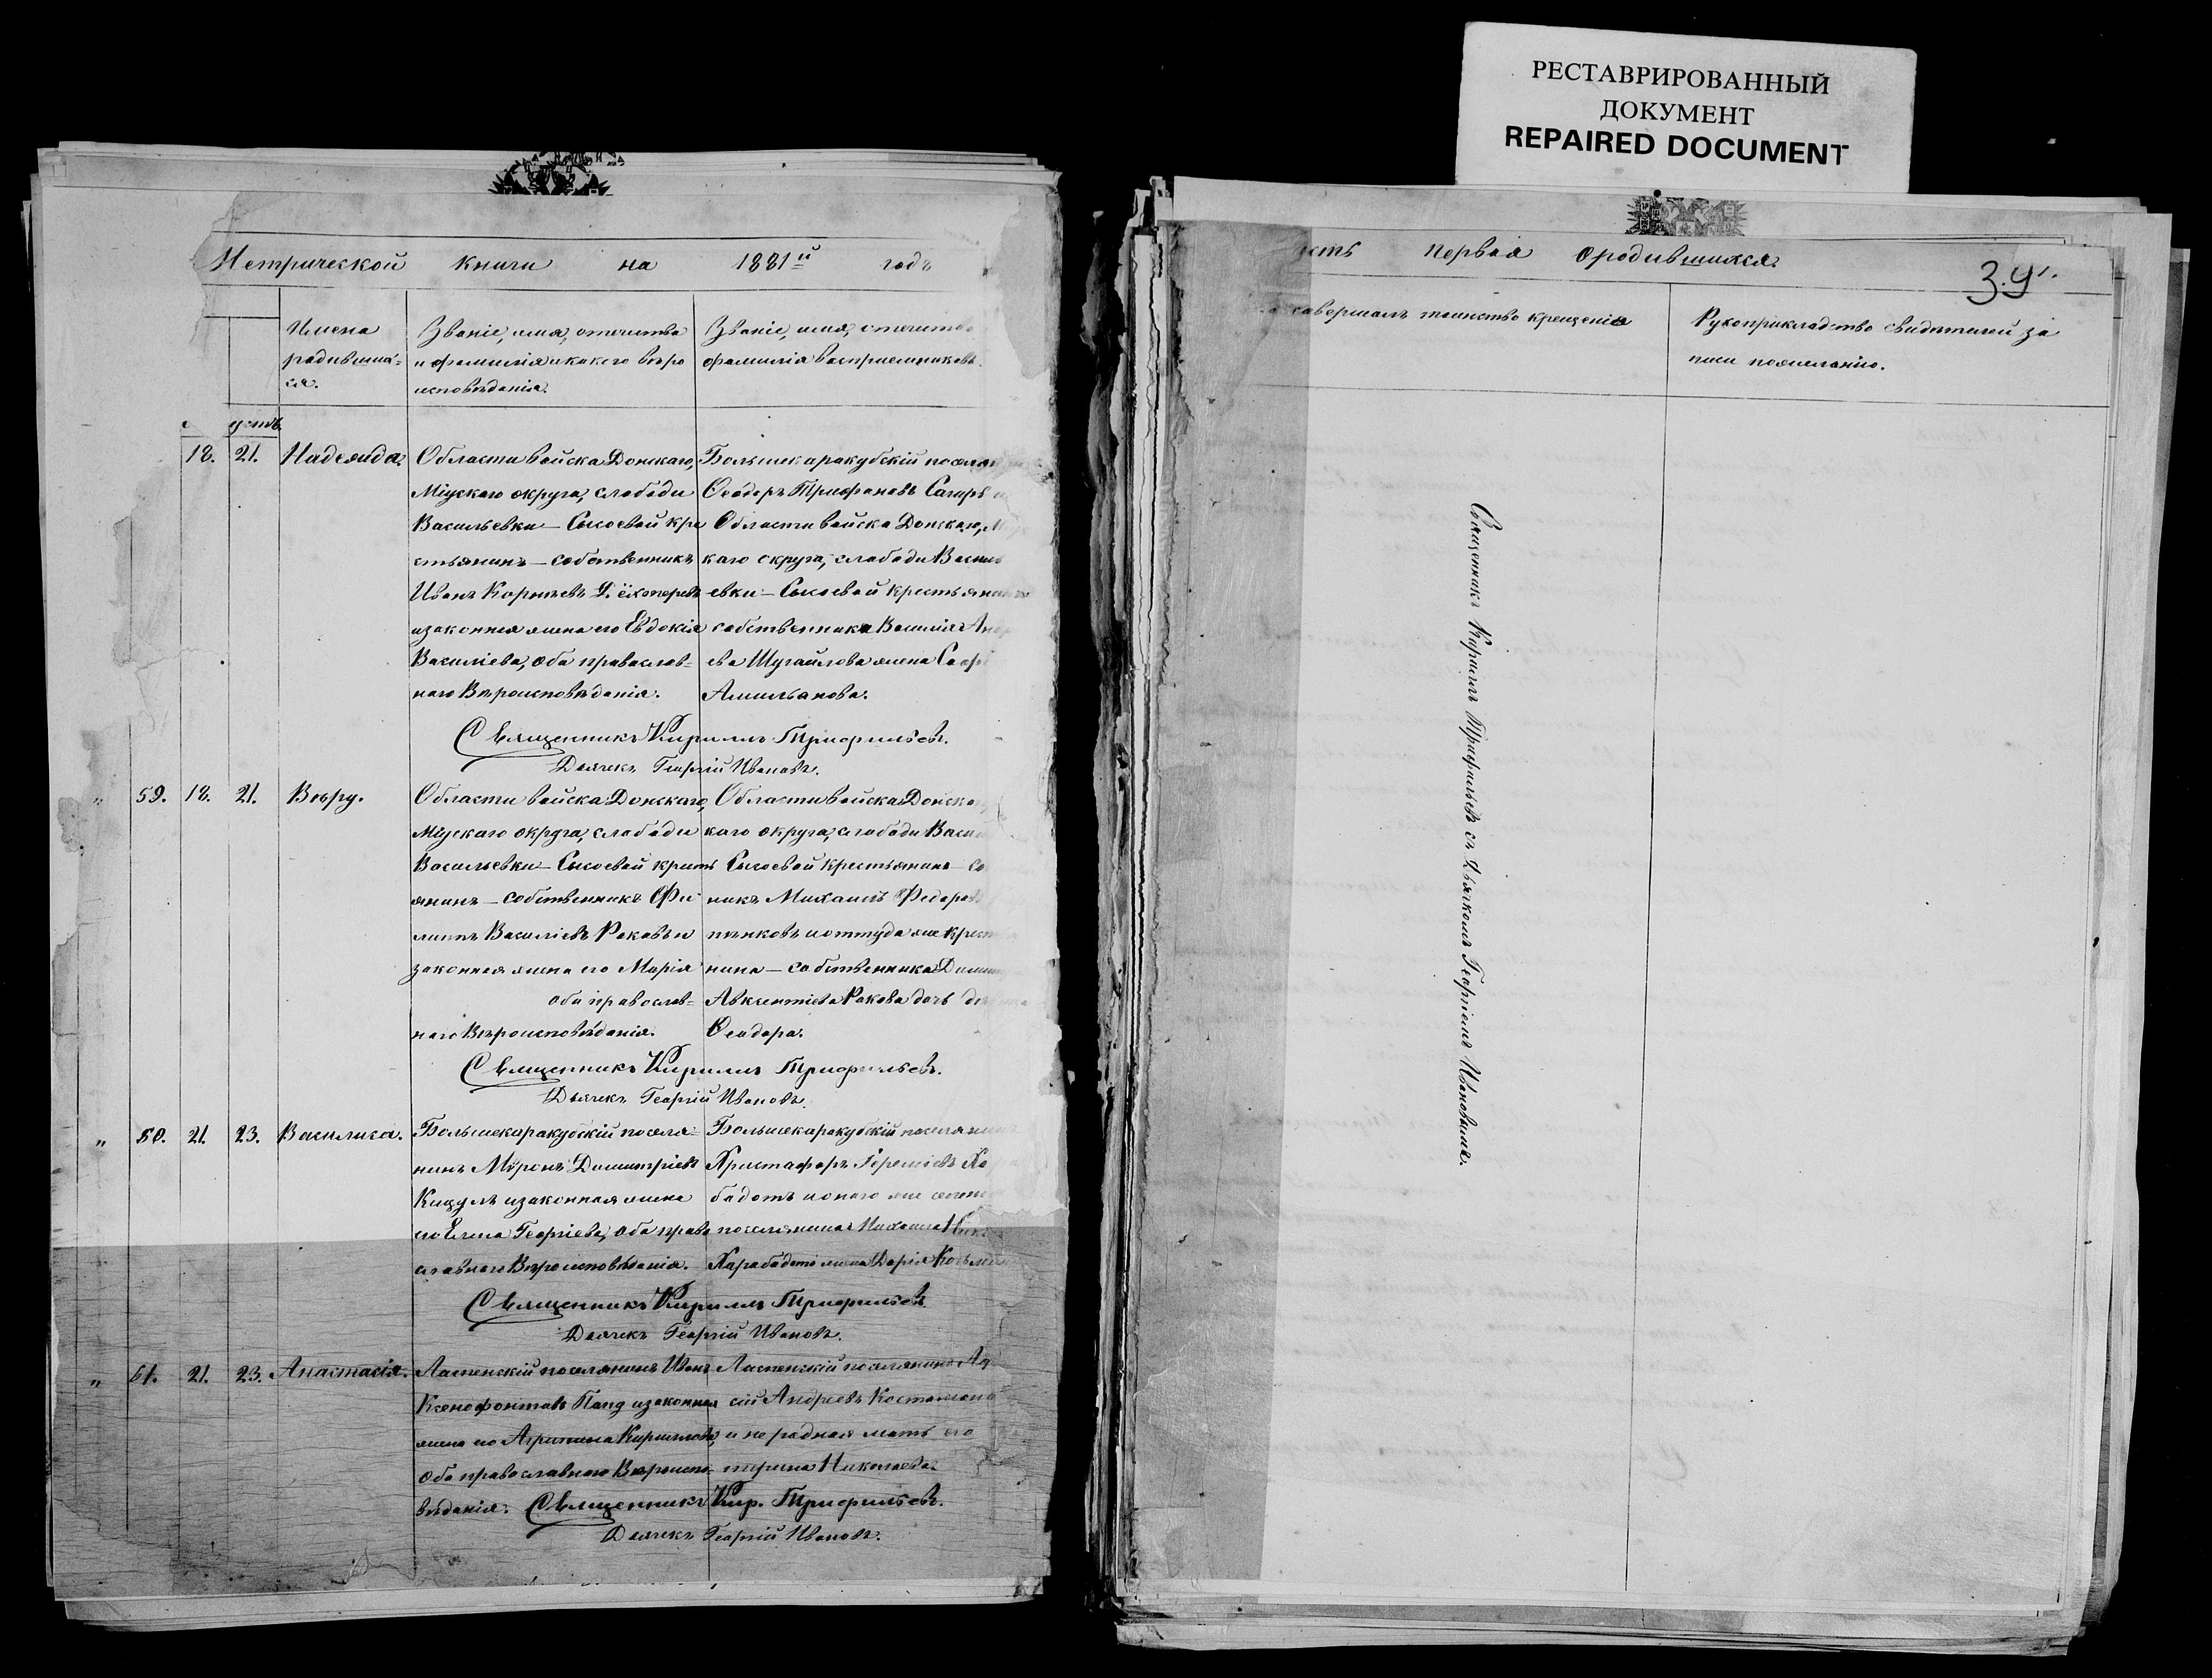 РЕСТАВРИРОВАННЫЙ
ДОКУМЕНТ
REPAIRED DOCUMENT
Метрической книги на 1881й годъ
Имена
родивших-
ся.
Званіе, имя, отчество
и фамилія и какого вѣро
исповѣданія.
Званіе, имя, отчество
фамилія воспріемниковъ.
устъ.
18. 21. Надежда.
Области войска Донскаго,
Міускаго округа, слободы
Васильевки — Сысоевой кре
стьянинъ — собственникъ
Иванъ Корнѣевъ
изаконная жена его Евдокія
Василіева, оба православ-
наго Вѣроисповѣданія.
Большекаракубскій поселя
Ѳеодоръ Трифоновъ Сагиръ
Области войска Донскаго, М
каго округа, слободы Васил
евки — Сысоевой крестьянина
собственника Василія Анд
ева Шугайлова жена Соф
Амильанова.
Священникъ Кириллъ Трифильевъ.
Дьячекъ Георгій Ивановъ.
" 59. 18. 21. Вѣру.
Области войска Донскаго,
Міускаго округа, слободы
Васильевки — Сысоевой крить
янинъ — собственникъ Фи
липъ Василіевъ Раковъ и
законная жена его Марія
оба православ-
наго Вѣроисповѣданія.
Области войска Донска
каго округа, слободы Васи
Сысоевой крестьянинъ — со
никъ Михаилъ Федоров
пѣнковъ и оттуда же крест
нина — собственника Дими
Авксентіева Ракова дочь
Ѳеодора.
Священникъ Кириллъ Трифильевъ.
Дьячекъ Георгій Ивановъ.
" 60. 21. 23. Василиса.
Большекаракубскій поселя-
нинъ Мѵронъ Димитріевъ
Кицулъ изаконная жена
его Елена Георгіева, оба право
славнаго Вѣроисповѣданія.
Большекаракубскій поселянин
Христофоръ Іереміевъ Ха
бадотъ и онаго же селен
поселянина Михаила Ник
Харабадотъ жена Дарія Козьми
Священникъ Кириллъ Трифильевъ.
Дьячекъ Георгій Ивановъ.
" 61. 21. 23. Анастасія.
Ласпенскій поселянинъ Иванъ
Ксенофонтовъ Папу изаконная
жена его Агрипина Кириллова,
оба православнаго Вѣроиспо-
вѣданія.
Ласпенскій поселянинъ
сій Андреевъ Костомана
и не родная мать его
терина Николаева.
Священникъ Кир. Трифильевъ.
Дьячекъ Георгій Ивановъ.
сть первая о родившихся.
39.
совершалъ таинство крещенія
Рукоприкладство свидѣтелей за
писи пожеланію.
Священникъ Кириллъ Трифильевъ съ Дьячкомъ Георгіемъ Ивановымъ.